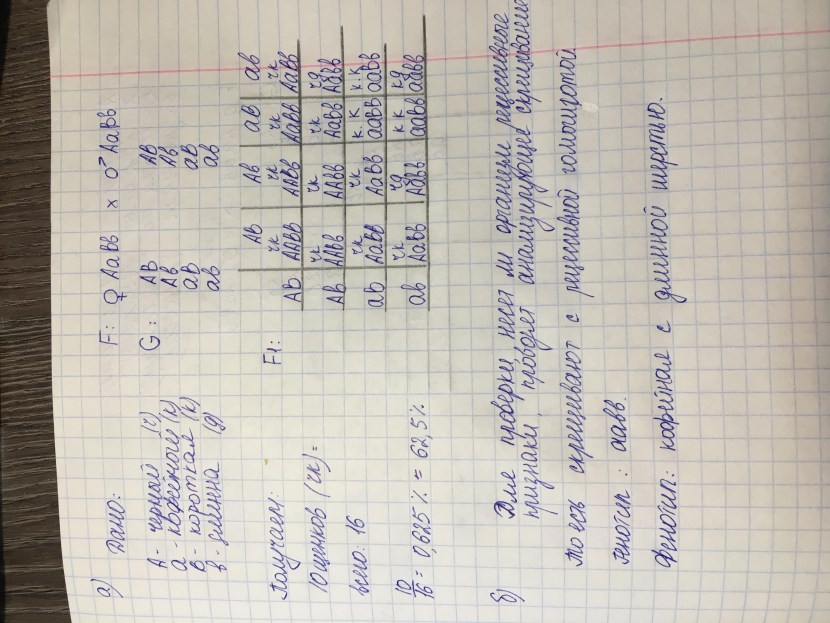 а) Дано:
А - черный (ч)
а - кофейного (к)
В - короткая (к)
в - длинна (д)
F: ♀ АаВв х ♂ АаВв
G: АВ АВ
Ав Ав
аВ аВ
ав ав
F1:
АВ Ав аВ ав
чк чк чк чк
АВ ААВВ ААВв АаВВ АаВв
чк чк чк чд
Ав ААВв ААвв АаВв Аавв
чк чк к.к к.к
аВ АаВВ АаВв ааВВ ааВв
чк чд кк кд
ав АаВв Аавв ааВв аавв
Получаем:
10 щенков (чк) =
всего: 16
10/16 = 0,625 % = 62,5 %
б) Для проверки, несет ли организм рецессивные
признаки, проводят анализирующее скрещивание
то есть скрещивают с рецессивной гомозиготой
генотип: аавв.
Фенотип: кофейная с длинной шерстью.